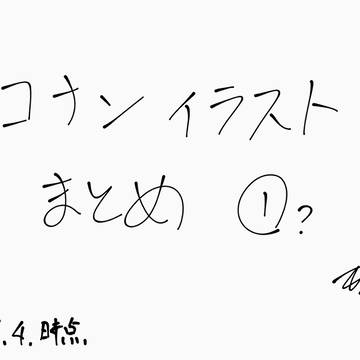 コナンイラスト
まとめ ①?
.4.時点.